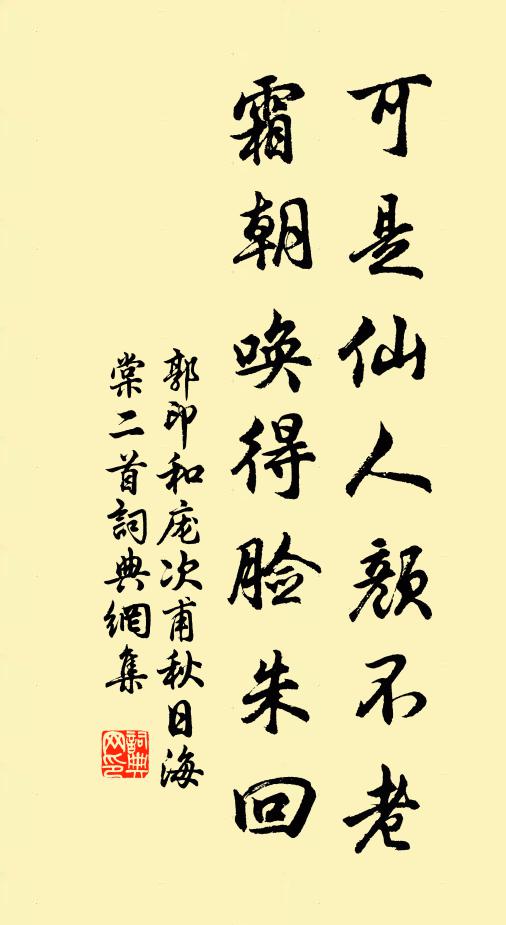 可是仙人颜不老
霜朝唤得脸朱回
郭印和庞次甫秋日海
棠二首詞典網集
詞典
网印